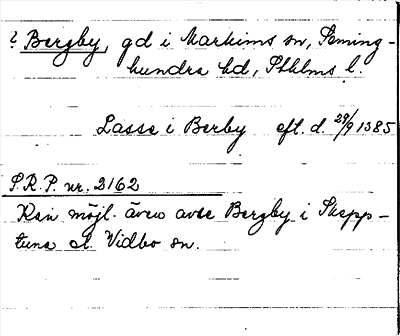 ? Bergby, gd i Markims sn, Seming-
hundra hd, Sthlms l.
Lasse i Berby eft. d. 29/9 1385
S.R.P. nr. 2162
Kan möjl. även avse Bergby i Skepp-
tuna el. Vidbo sn.